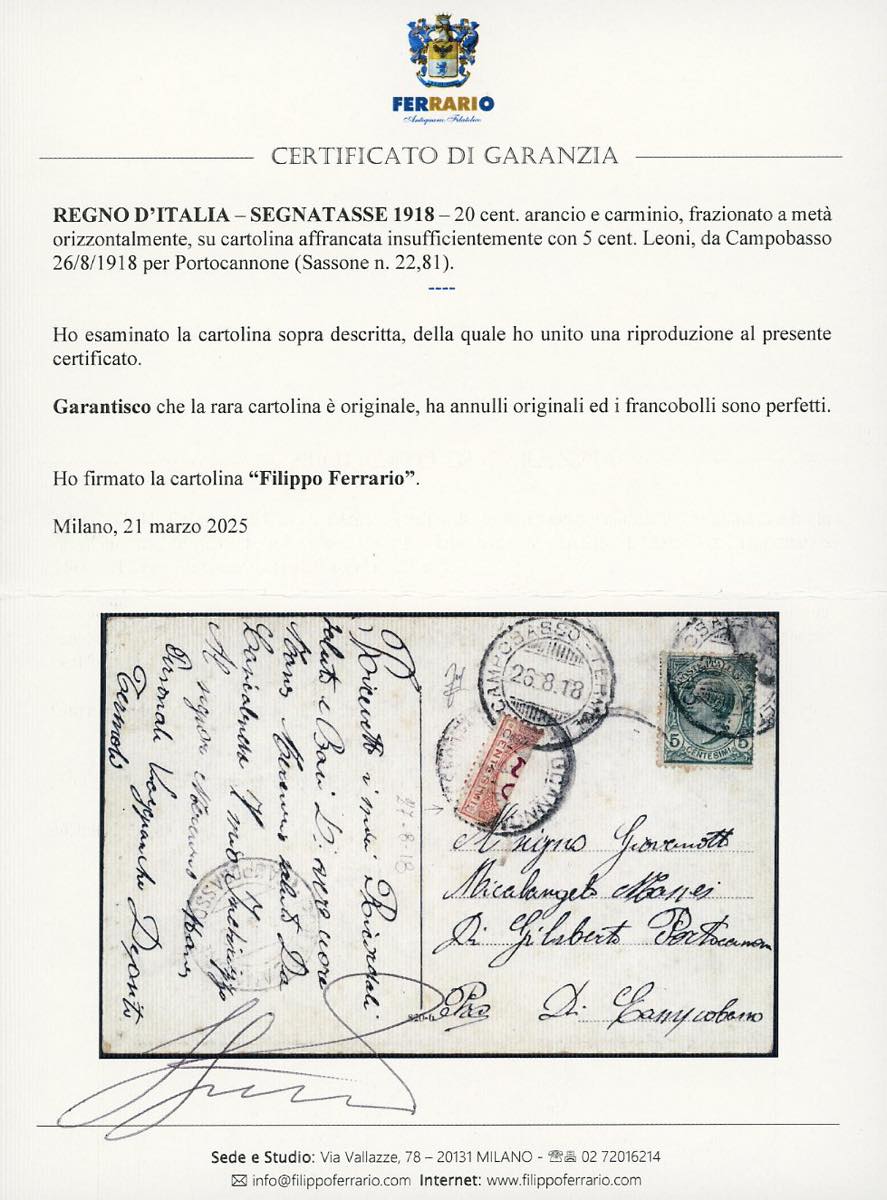 FERRARIO
Antiquario Filatelico
CERTIFICATO DI GARANZIA
REGNO D'ITALIA – SEGNATASSE 1918 – 20 cent. arancio e carminio, frazionato a metà
orizzontalmente, su cartolina affrancata insufficientemente con 5 cent. Leoni, da Campobasso
26/8/1918 per Portocannone (Sassone n. 22,81).
----
Ho esaminato la cartolina sopra descritta, della quale ho unito una riproduzione al presente
certificato.
Garantisco che la rara cartolina è originale, ha annulli originali ed i francobolli sono perfetti.
Ho firmato la cartolina “Filippo Ferrario”.
Milano, 21 marzo 2025
CAMPOBASSO - TERMOLI
26.8.18
5 5
CENTESIMI
27-8-18
Al signo Giovanotti
Micalangelo
Di Gilberto Portocannon
Di Campobano
Ricevette i miei Ricordali
saluti e Baci
Al signor
Termoli
Sede e Studio: Via Vallazze, 78 – 20131 MILANO - ☎ 02 72016214
✉ info@filippoferrario.com Internet: www.filippoferrario.com